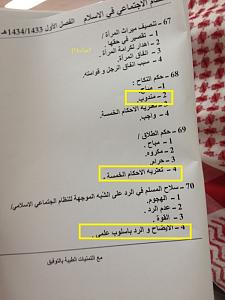 ظام الاجتماعي في الاسلام الفصل الأول 1433/1434هـ
67- تنصيف ميراث المرأة /
1 - تقصير في حقها .
2 - اهدار لكرامة المرأة .
3 - انفاق المرأة .
4 - سبب انفاق الرجل و قوامته.
68 - حكم النكاح :
1 - مباح .
2 - مندوب.
3 - تعتريه الاحكام الخمسة.
4 - واجب.
69 - حكم الطلاق /
1 - مباح .
2 - مكروه.
3 - حرام.
4 - تعتريه الاحكام الخمسة .
70 - سلاح المسلم في الرد على الشبه الموجهة للنظام الاجتماعي الاسلامي/
1 - الهجوم.
2 - عدم الرد .
3 - القوة .
4 - الايضاح و الرد باسلوب علمي .
مع التمنيات الطيبة بالتوفيق